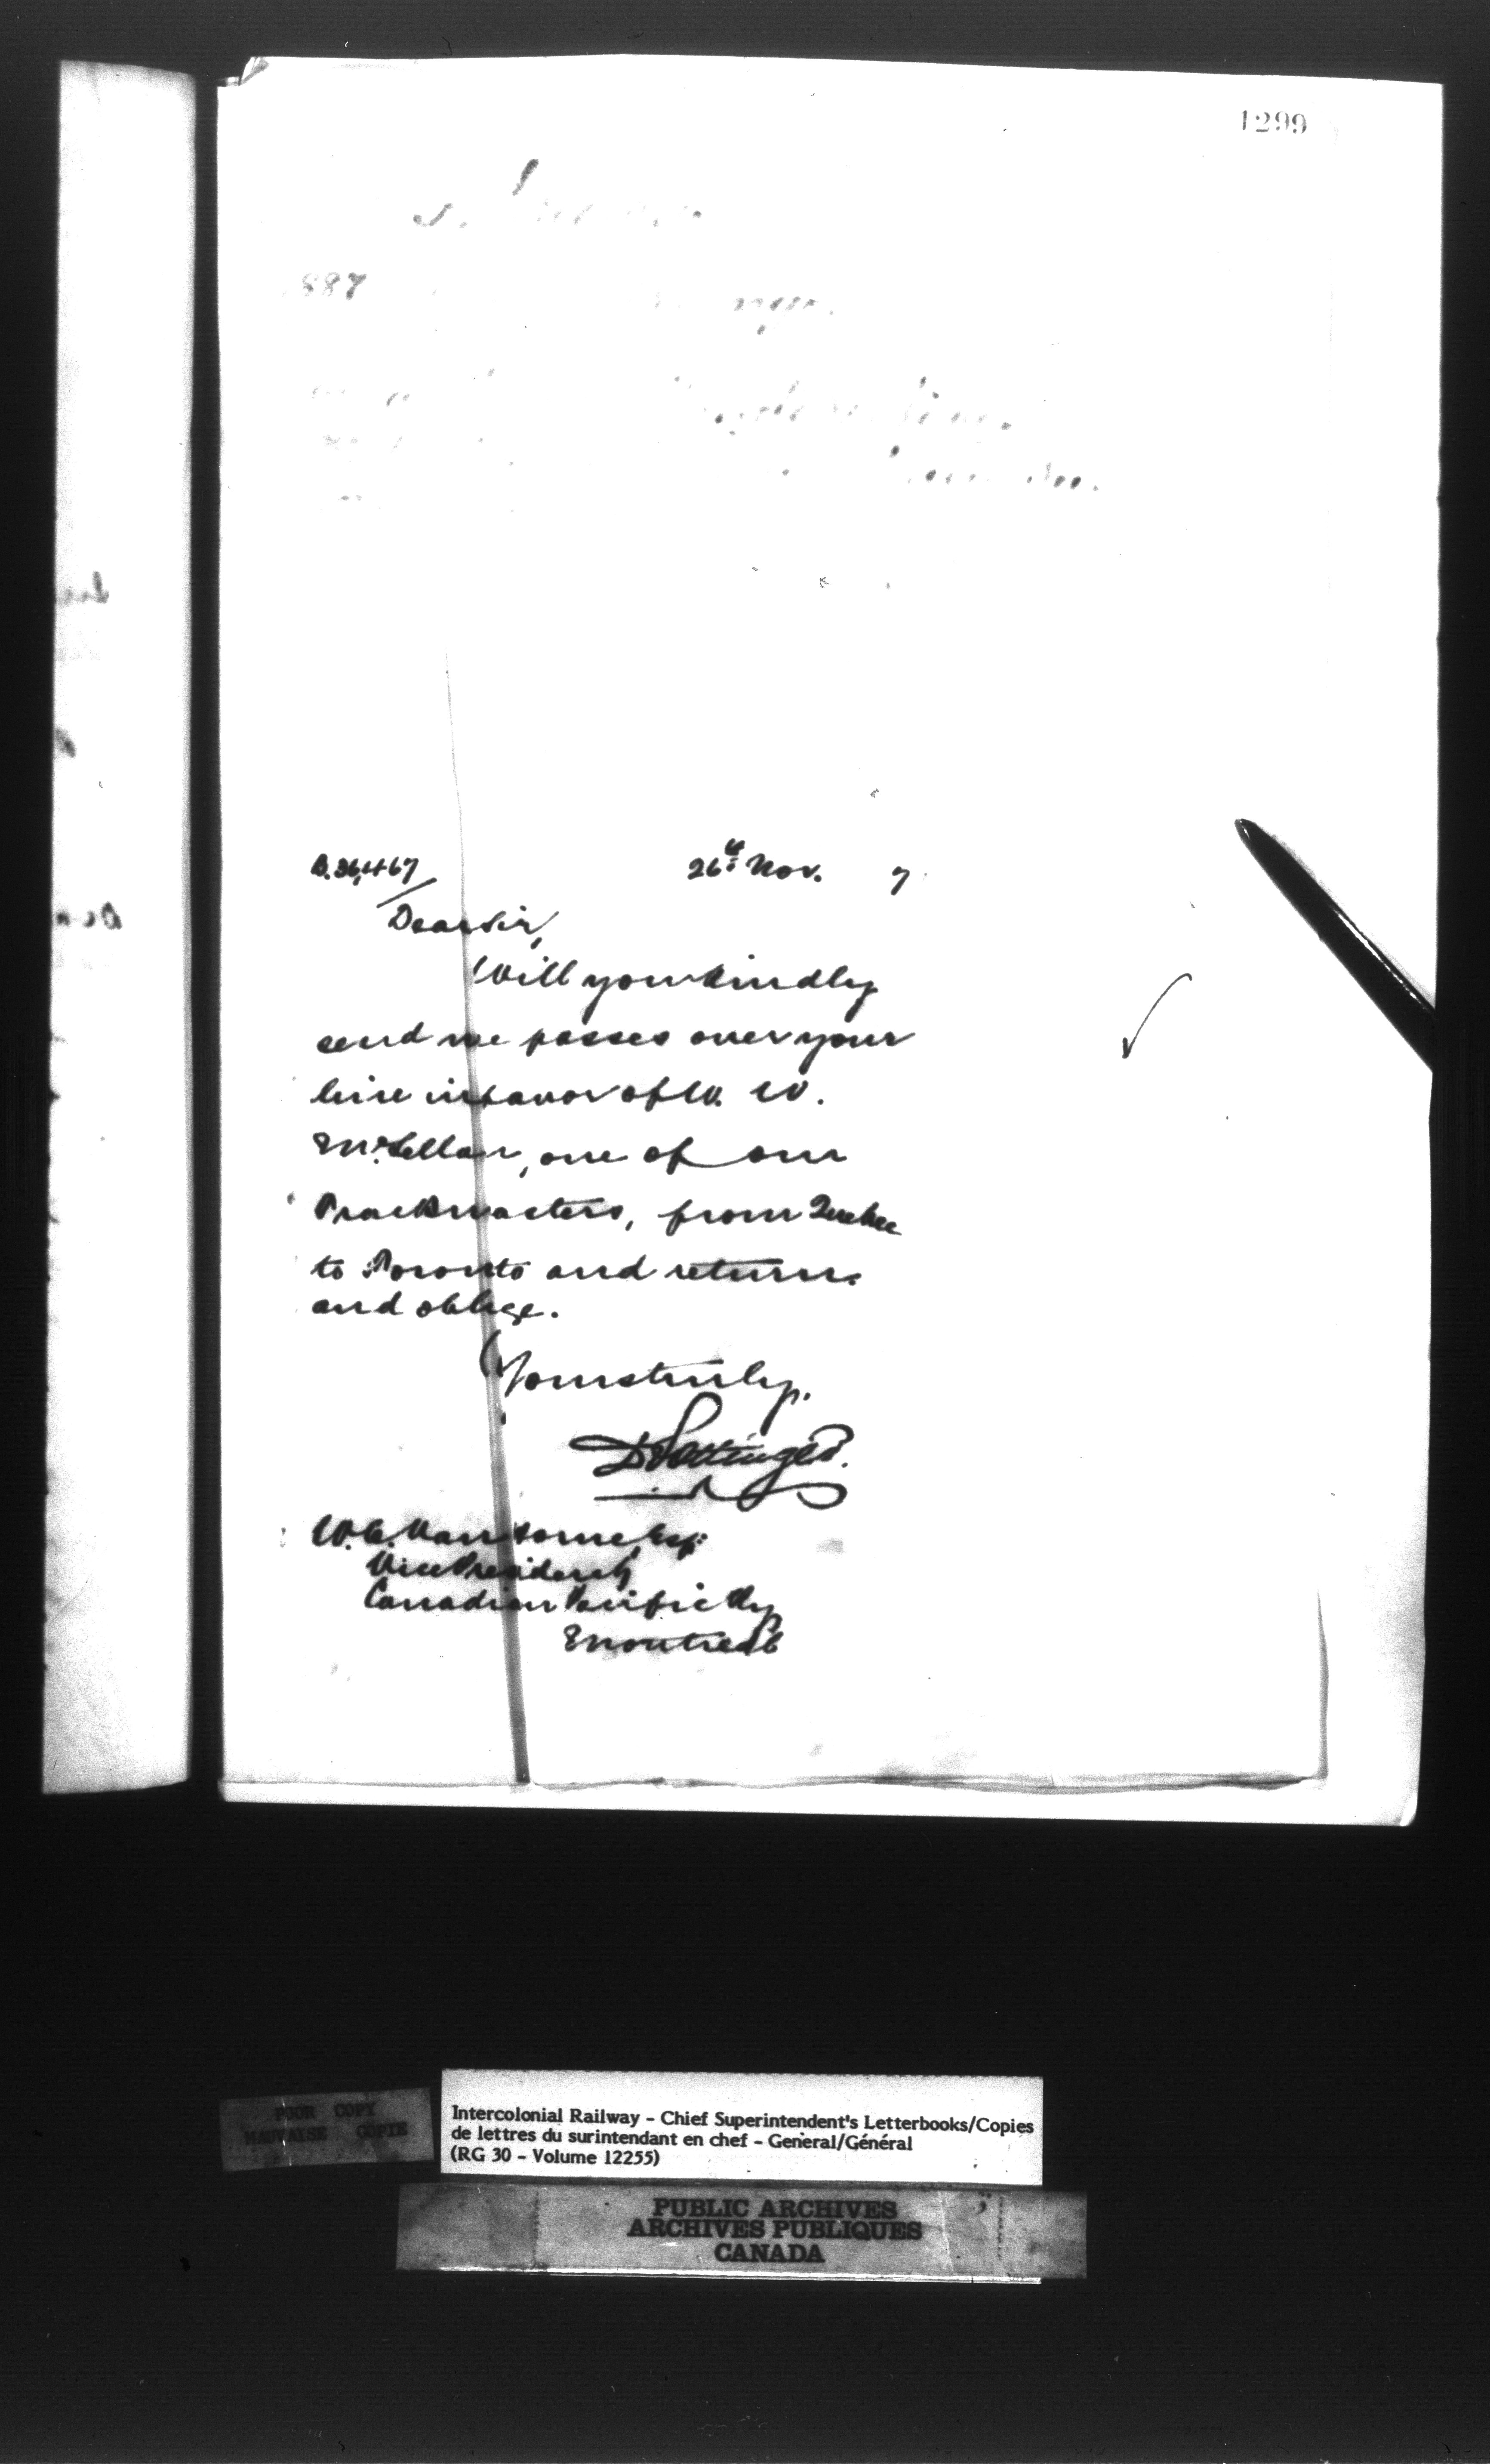 1299
887
B.36,467 26th Nov. 7
Dear Sir,
Will you kindly
send me passes over your
line in favor of W. W.
McLellan, one of our
Trackmasters, from Quebec
to Toronto and return.
and oblige.
Yours truly.
D Pottinger.
W. C. Van Horne, Esq:
Vice President,
Canadian Pacific Ry
Montreal
POOR COPY
MAUVAISE COPIE
Intercolonial Railway - Chief Superintendent's Letterbooks/Copies
de lettres du surintendant en chef - General/Général
(RG 30 - Volume 12255)
PUBLIC ARCHIVES
ARCHIVES PUBLIQUES
CANADA